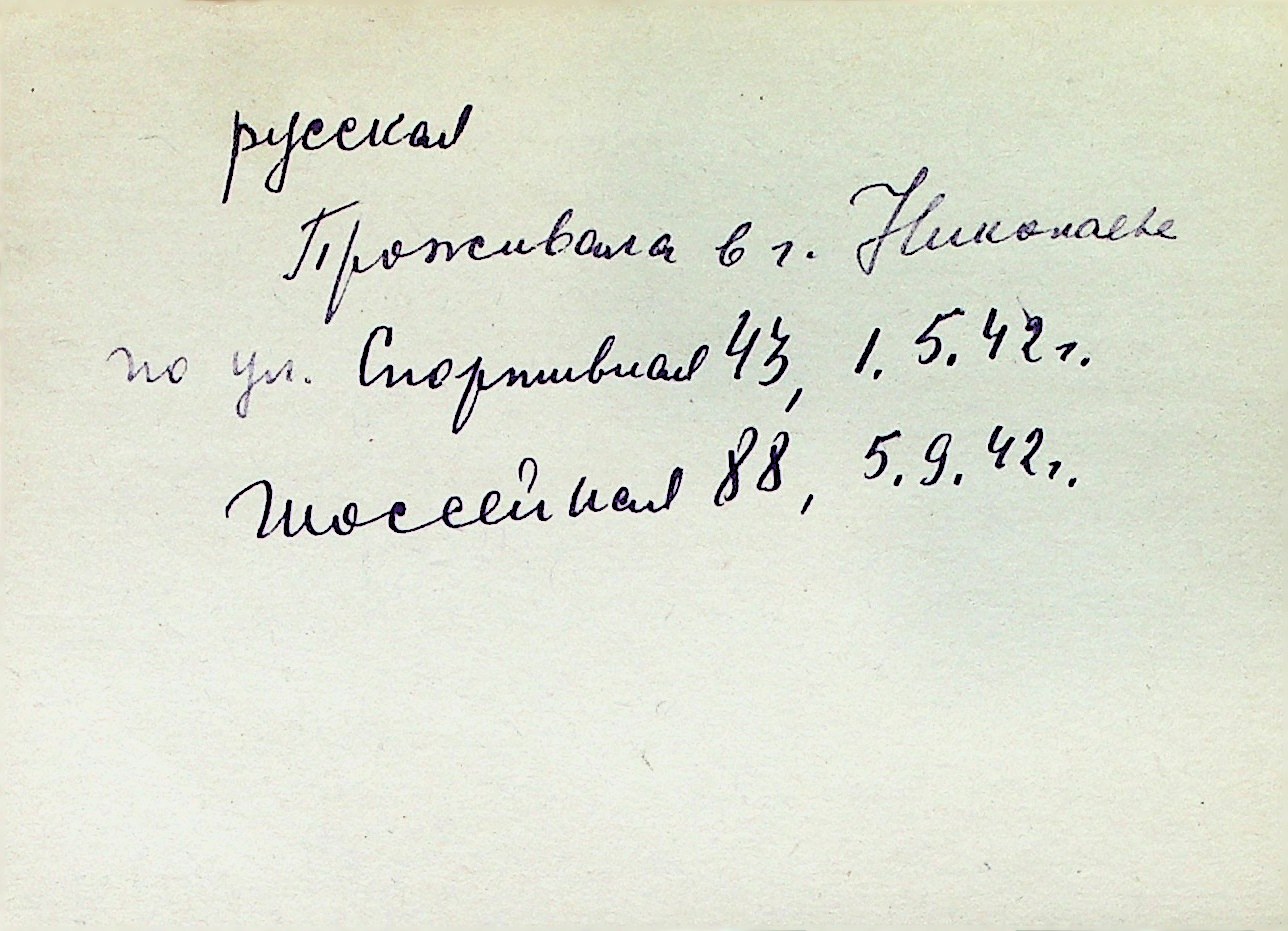 русская
Проживала в г. Николаеве
по ул. Спортивная 43, 1. 5. 42 г.
Шоссейная 88, 5. 9. 42 г.